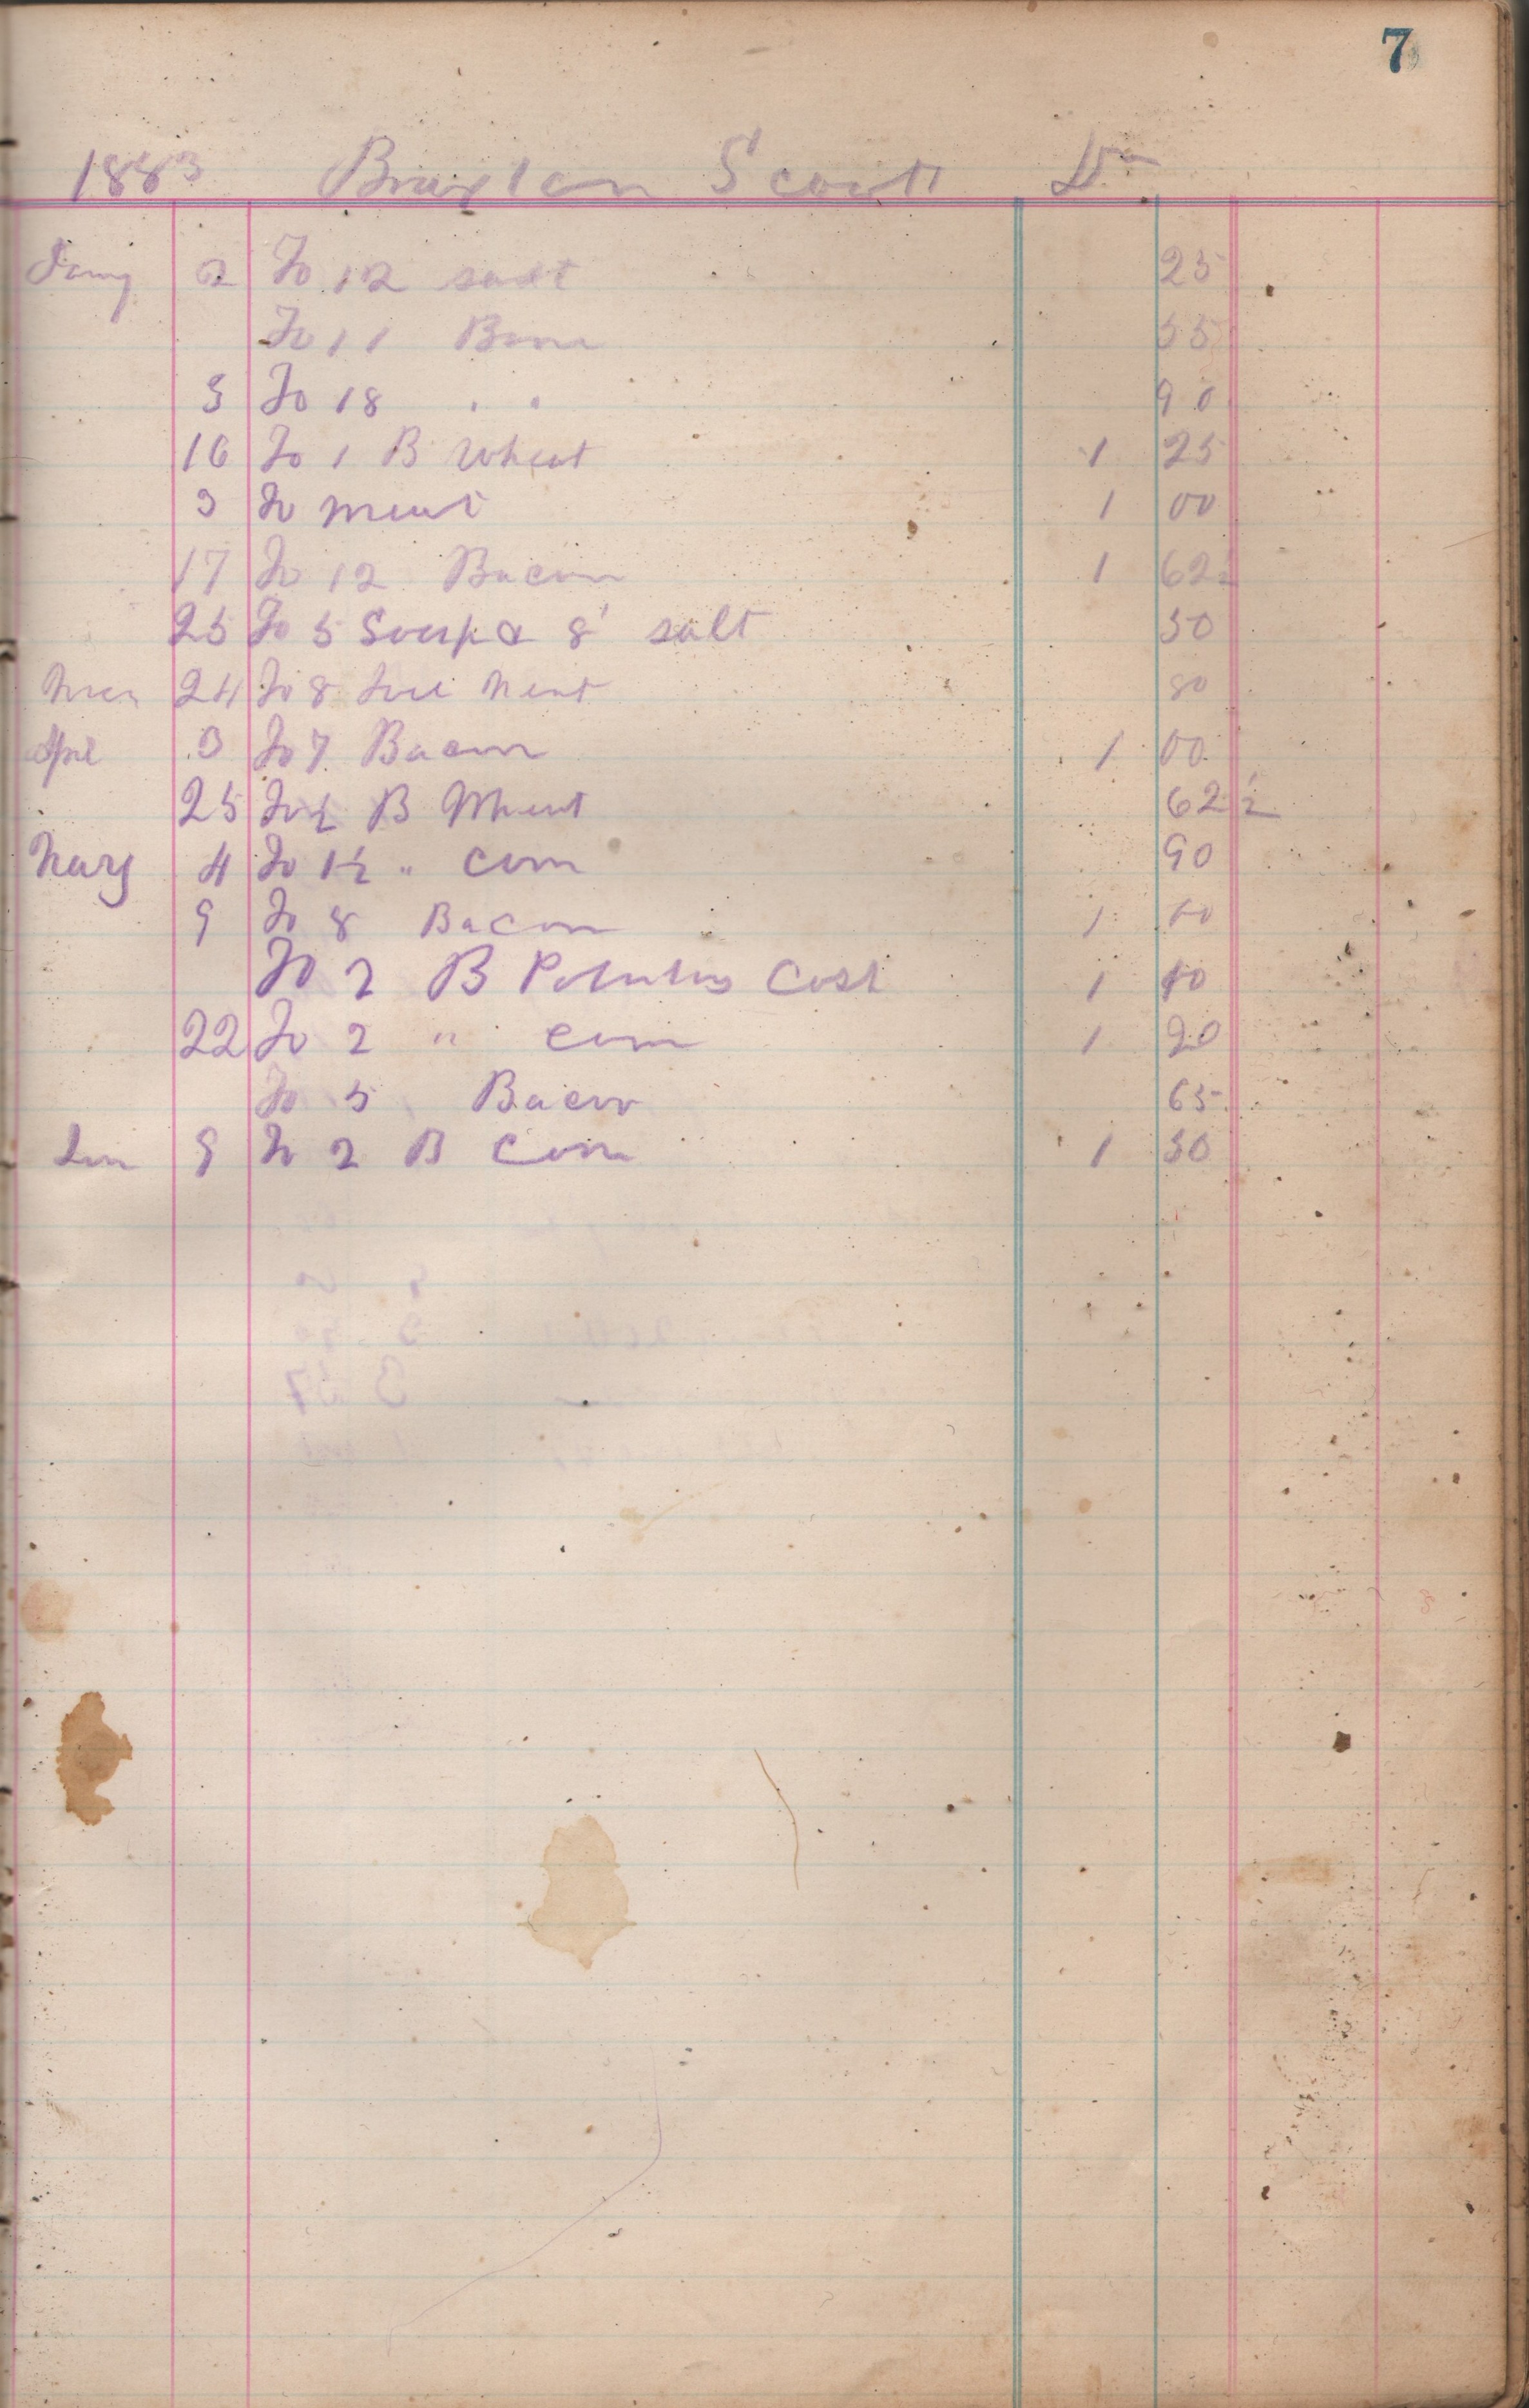 7
1883 Braxton Scott Dr
Jany 2 To 12 salt 25
To 11 Bone 55
3 To 18 " " 90
16 To 1 B Wheat 1 25
3 To meat 1 00
17 To 12 Bacon 1 62½
25 To 5 Soap & 8 salt 50
24 To 8 meat 80
Apr 3 To 7 Bacon 1 00
25 To ½ B Wheat 62½
May 4 To 1½ " corn 90
9 To 8 Bacon 1
To 2 B Potatoes Cost 1
22 To 2 " corn 1 20
To 5 Bacon 65
Jun 9 To 2 B Corn 1 30